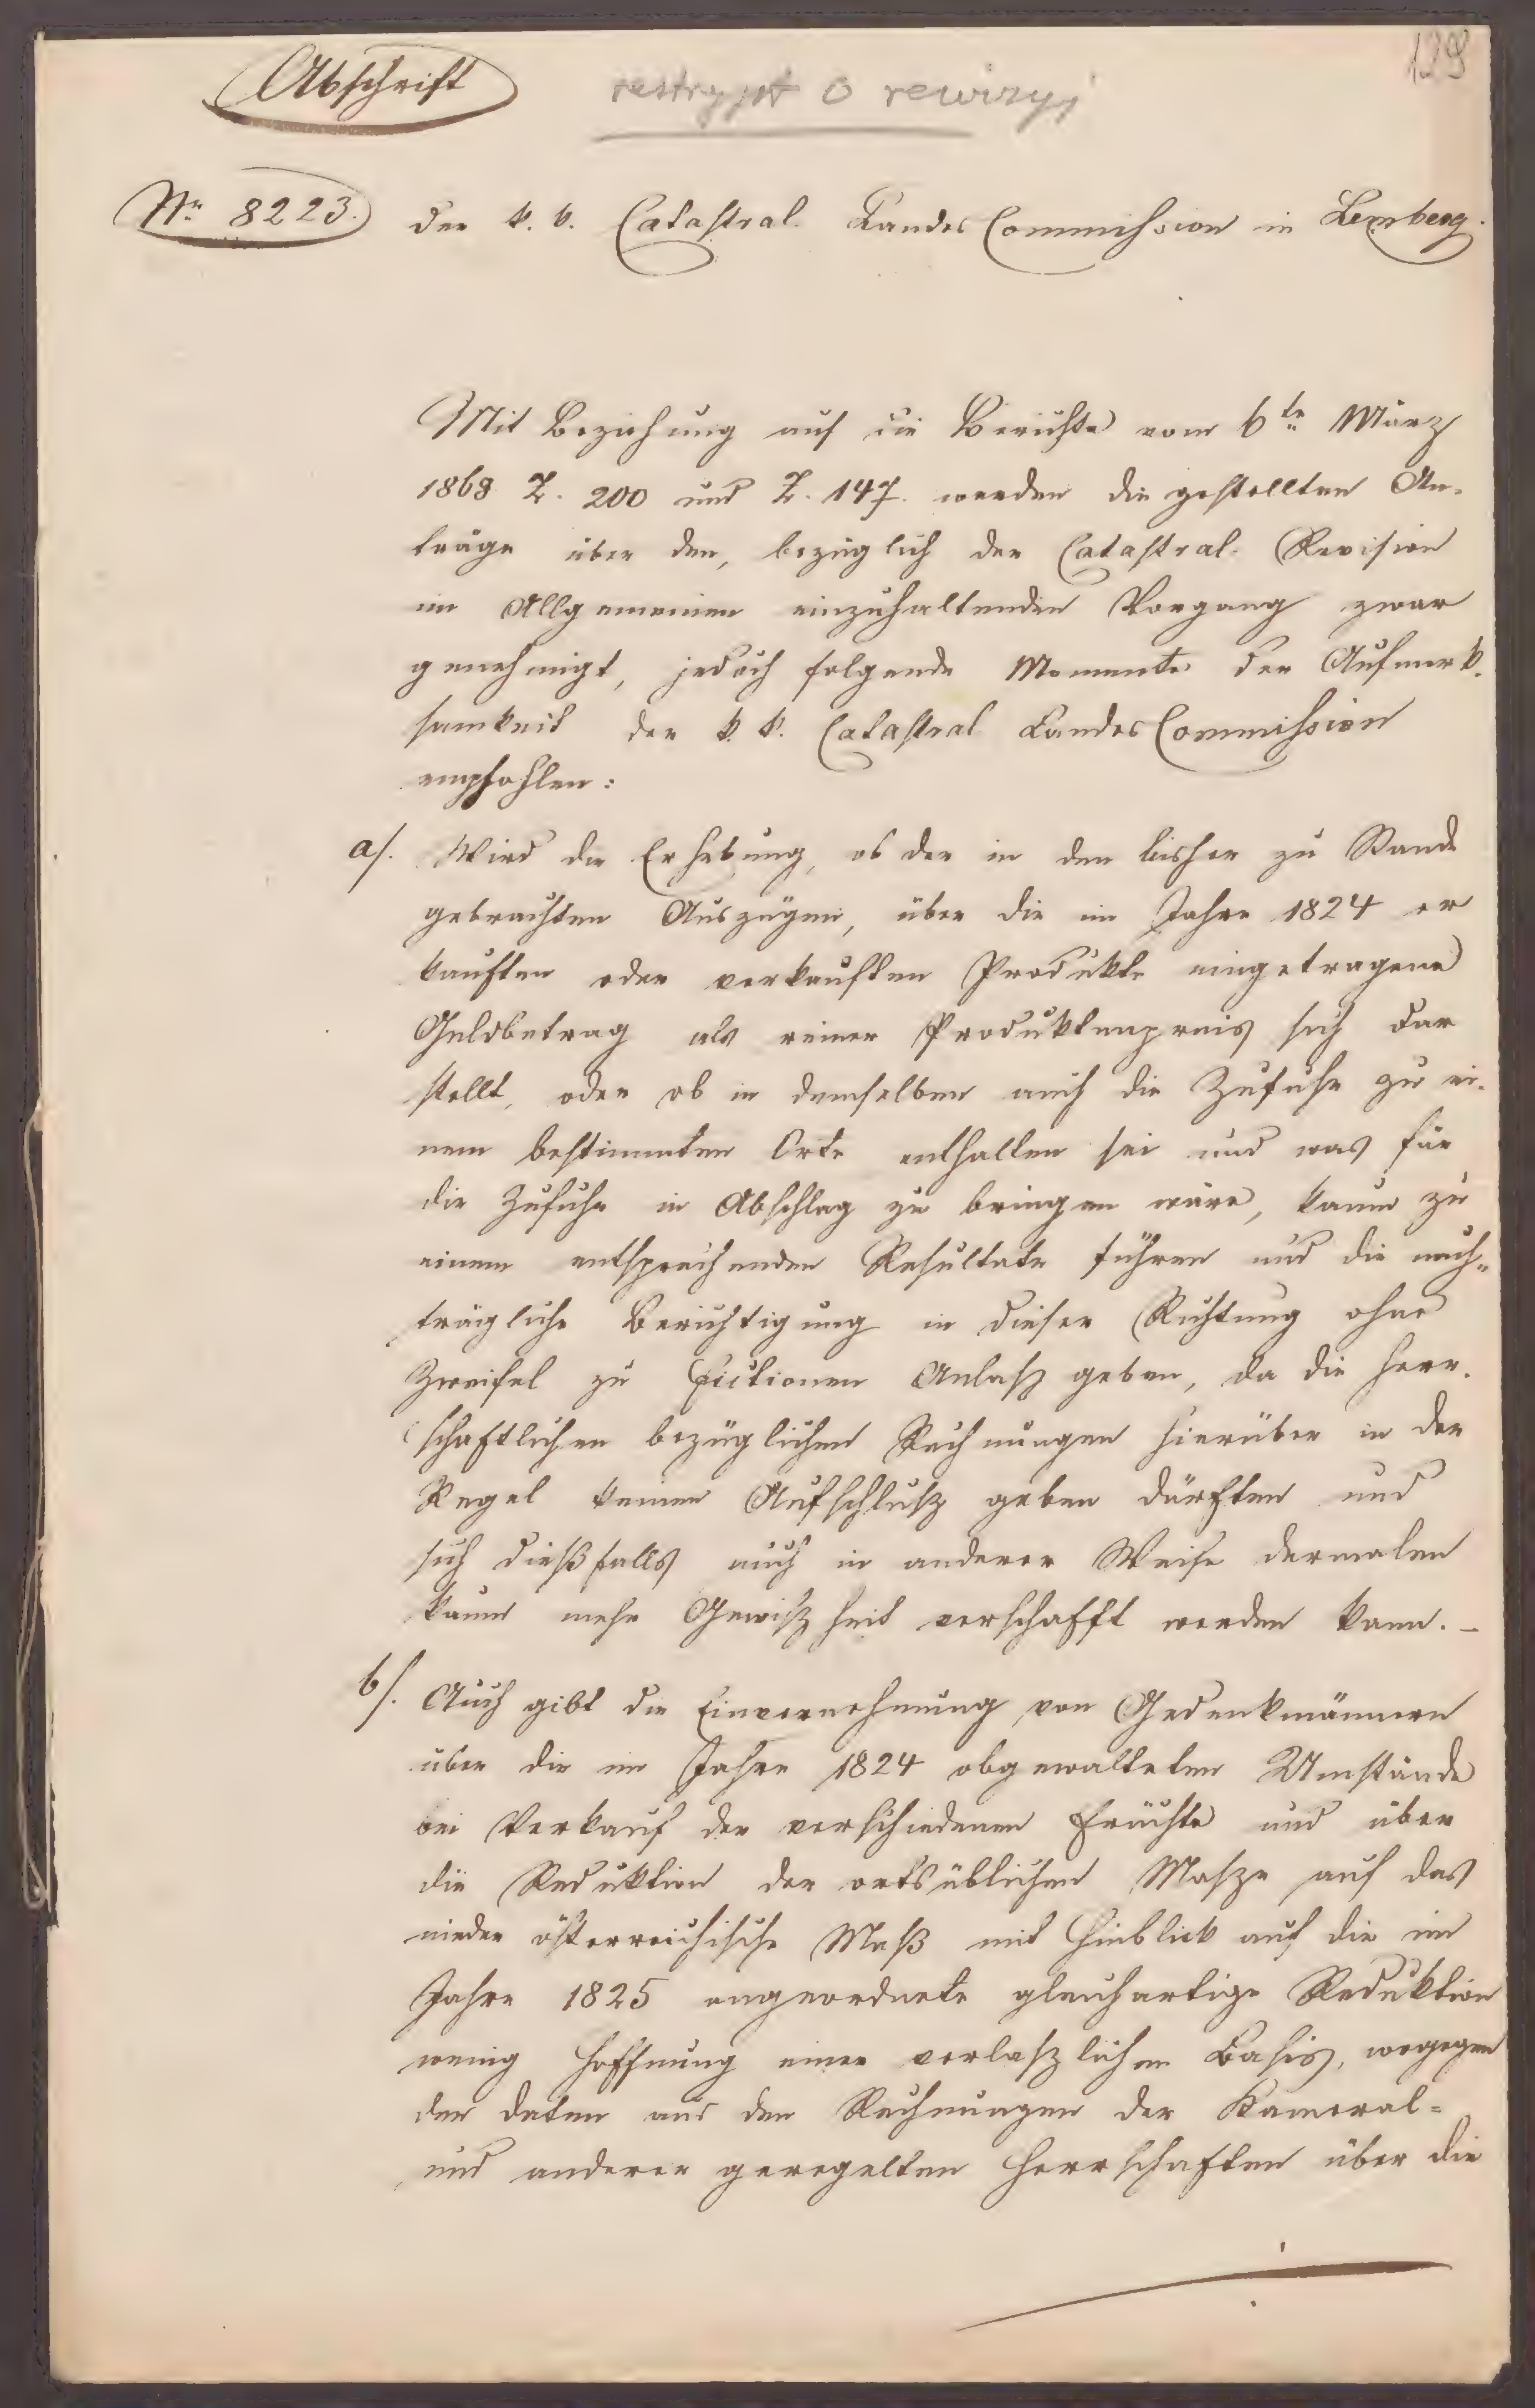 129
Abschrift
restrypt o rewizyj
Nr. 8223. der k. k. Catastral Landes Commission in Lemberg.
Mit Beziehung auf die Berichte vom 6te März
1868 Z. 200 und Z. 147. werden die gestellten An-
träge über den, bezüglich der Catastral-Revision
im Allgemeinen einzuhaltenden Vorgang zwar
genehmigt, jedoch folgende Momente der Aufmerk-
samkeit der k. k. Catastral Landes Commission
empfohlen:
a/. Wird die Erhebung, ob der in den bisher zu Stande
gebrachten Auszügen, über die im Jahre 1824 er
kauften oder verkauften Produkte eingetragene
Geldbetrag als reiner Produktenpreis sich dar
stellt, oder ob in demselben auch die Zufuhr zu ei-
nem bestimmten Orte enthalten sei und was für
die Zufuhr in Abschlag zu bringen wäre, kaum zu
einem entsprechenden Resultate führen und die nach-
trägliche Berichtigung in dieser Richtung ohne
Zweifel zu Fictionen Anlaß geben, da die herr-
schaftlichen bezüglichen Rechnungen hierüber in der
Regel keinen Aufschluß geben dürften und
sich dießfalls auch in anderer Weise dermalen
kaum mehr Gewißheit verschafft werden kann. –
b/. Auch gibt die Einvernehmung von Gedenkmännern
über die im Jahre 1824 obgewalteten Umstände
bei Verkauf der verschiedenen Früchte und über
die Reduktion der ortsüblichen Maße auf das
nieder österreichische Maß mit Hinblick auf die im
Jahre 1825 angeordnete gleichartige Reduktion
wenig Hoffnung einer verlaßlichen Basis, wogegen
den Daten aus den Rechnungen der Kameral-
und anderer geregelten Herrschaften über die